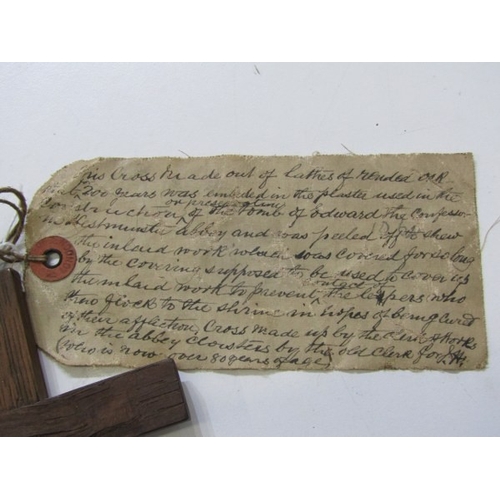 his Cross Made out of lathes of rended Oak
200 years was embeded in the plaster used in the
or preservation
Construction of the Tomb of Edward the Confessor
in Westminster abbey and was peeled off to shew
the inlaid work which was covered for so long
by the covering supposed to be used to cover up
contact of
the inlaid work to prevent the lepers who
thew flock to the shrine in hopes of being cured
of their affliction, Cross made up by the
in the abbey cloisters by the old Clerk
who is now over 80 years of age